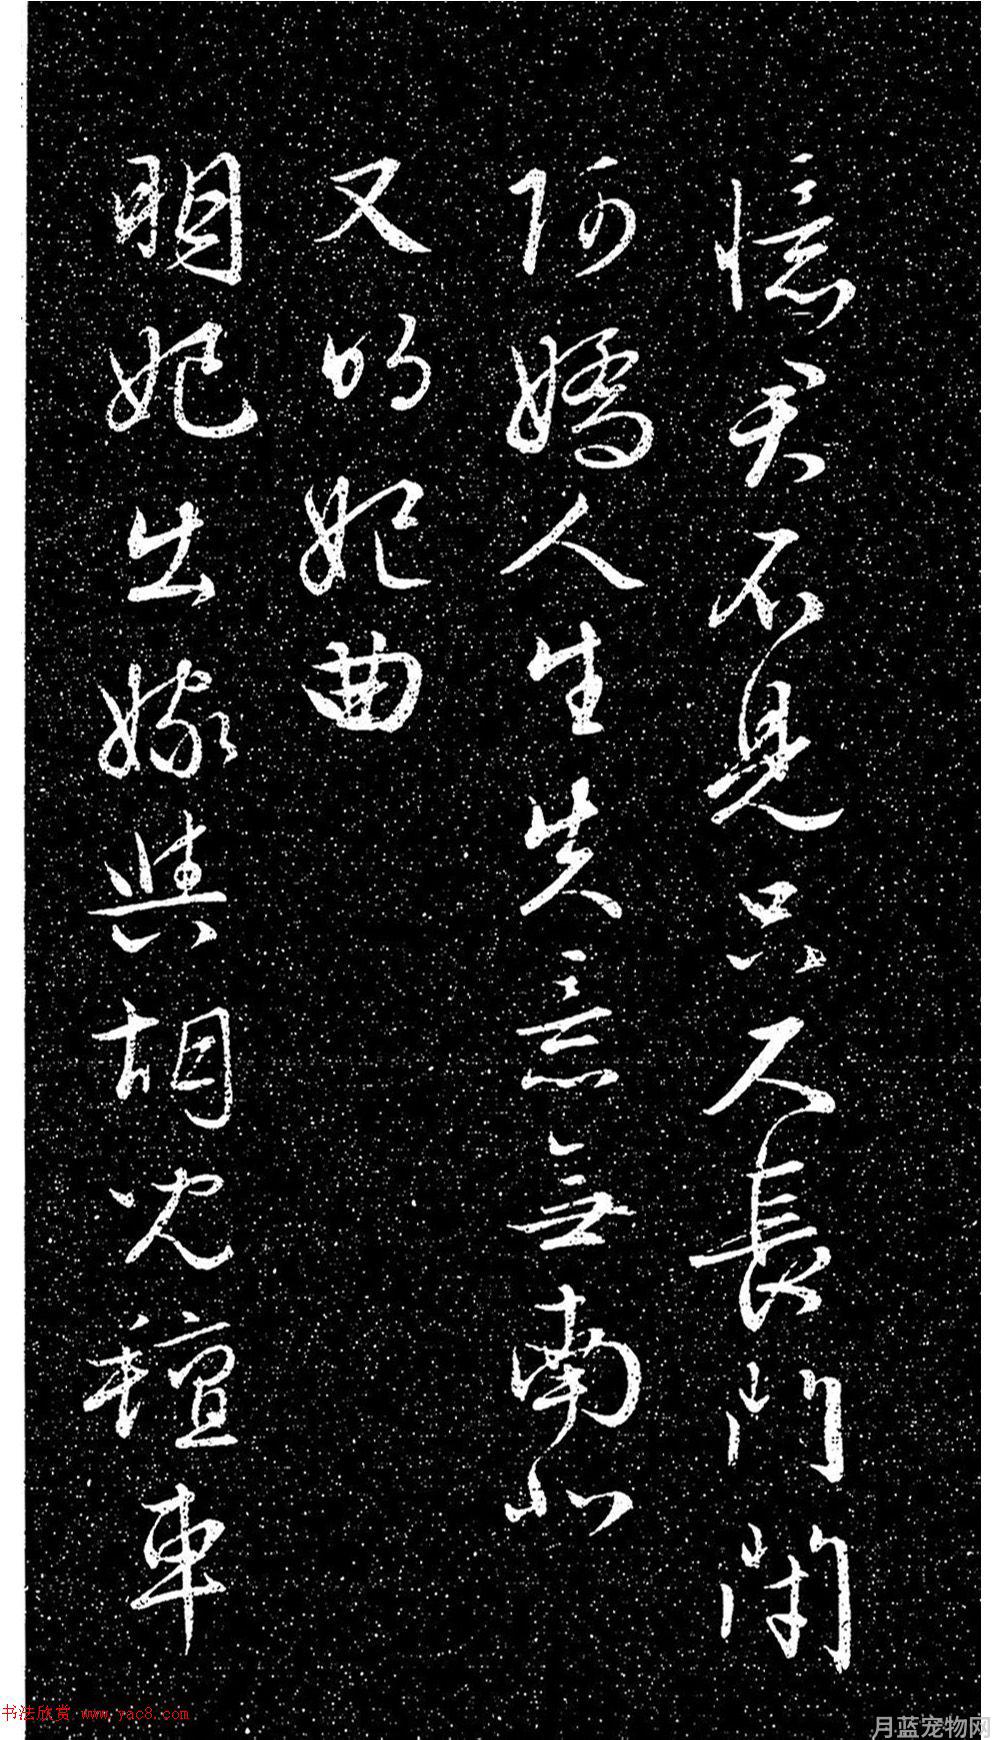 憶君不見只尺長門閉
阿嬌人生失意無南北
又明妃曲
明妃出嫁與胡兒氊車
书法欣赏 www.yac8.com
月蓝宠物网